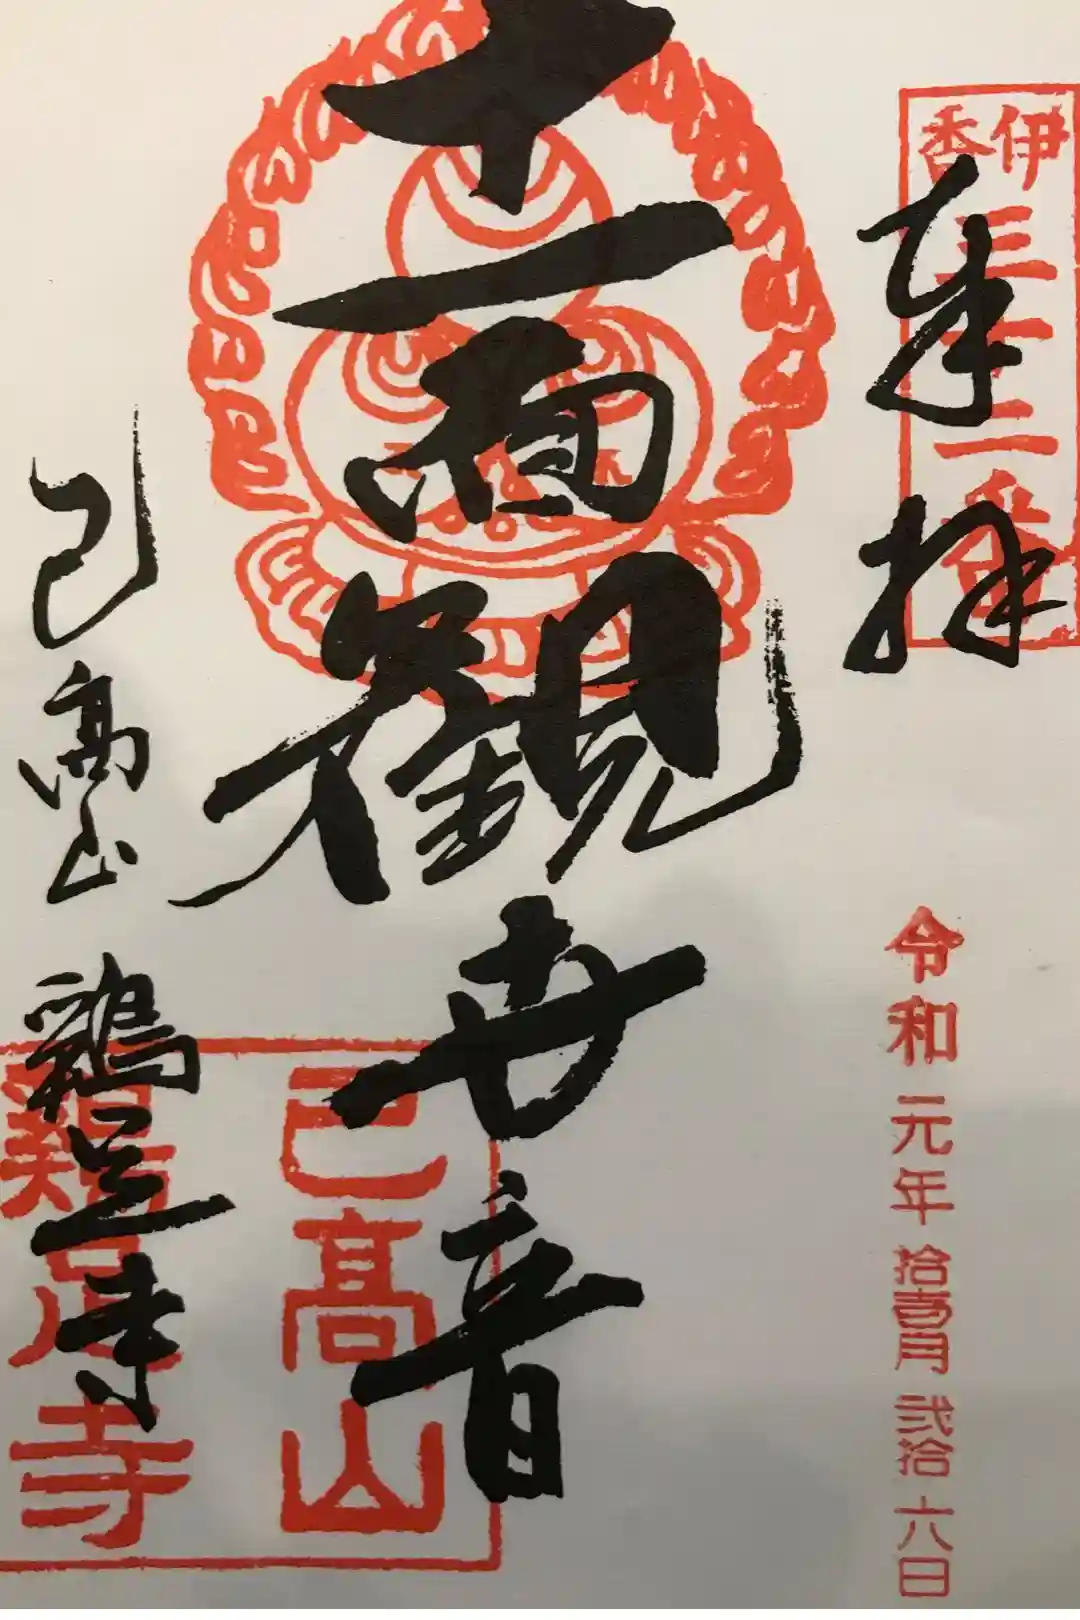 伊香三十三番
奉拝
令和元年拾壹月弐拾六日
十一面観世音
己高山
鶏足寺
己高山 鶏足寺